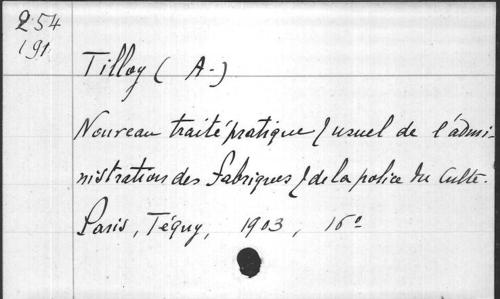 254
191
Tilloy ( A. )
Nouveau traité pratique & usuel de l'admi-
nistration des fabriques & de la police du culte.
Paris, Téquy, 1903, 16°